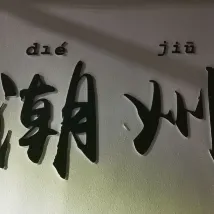 dié jiǔ
潮州